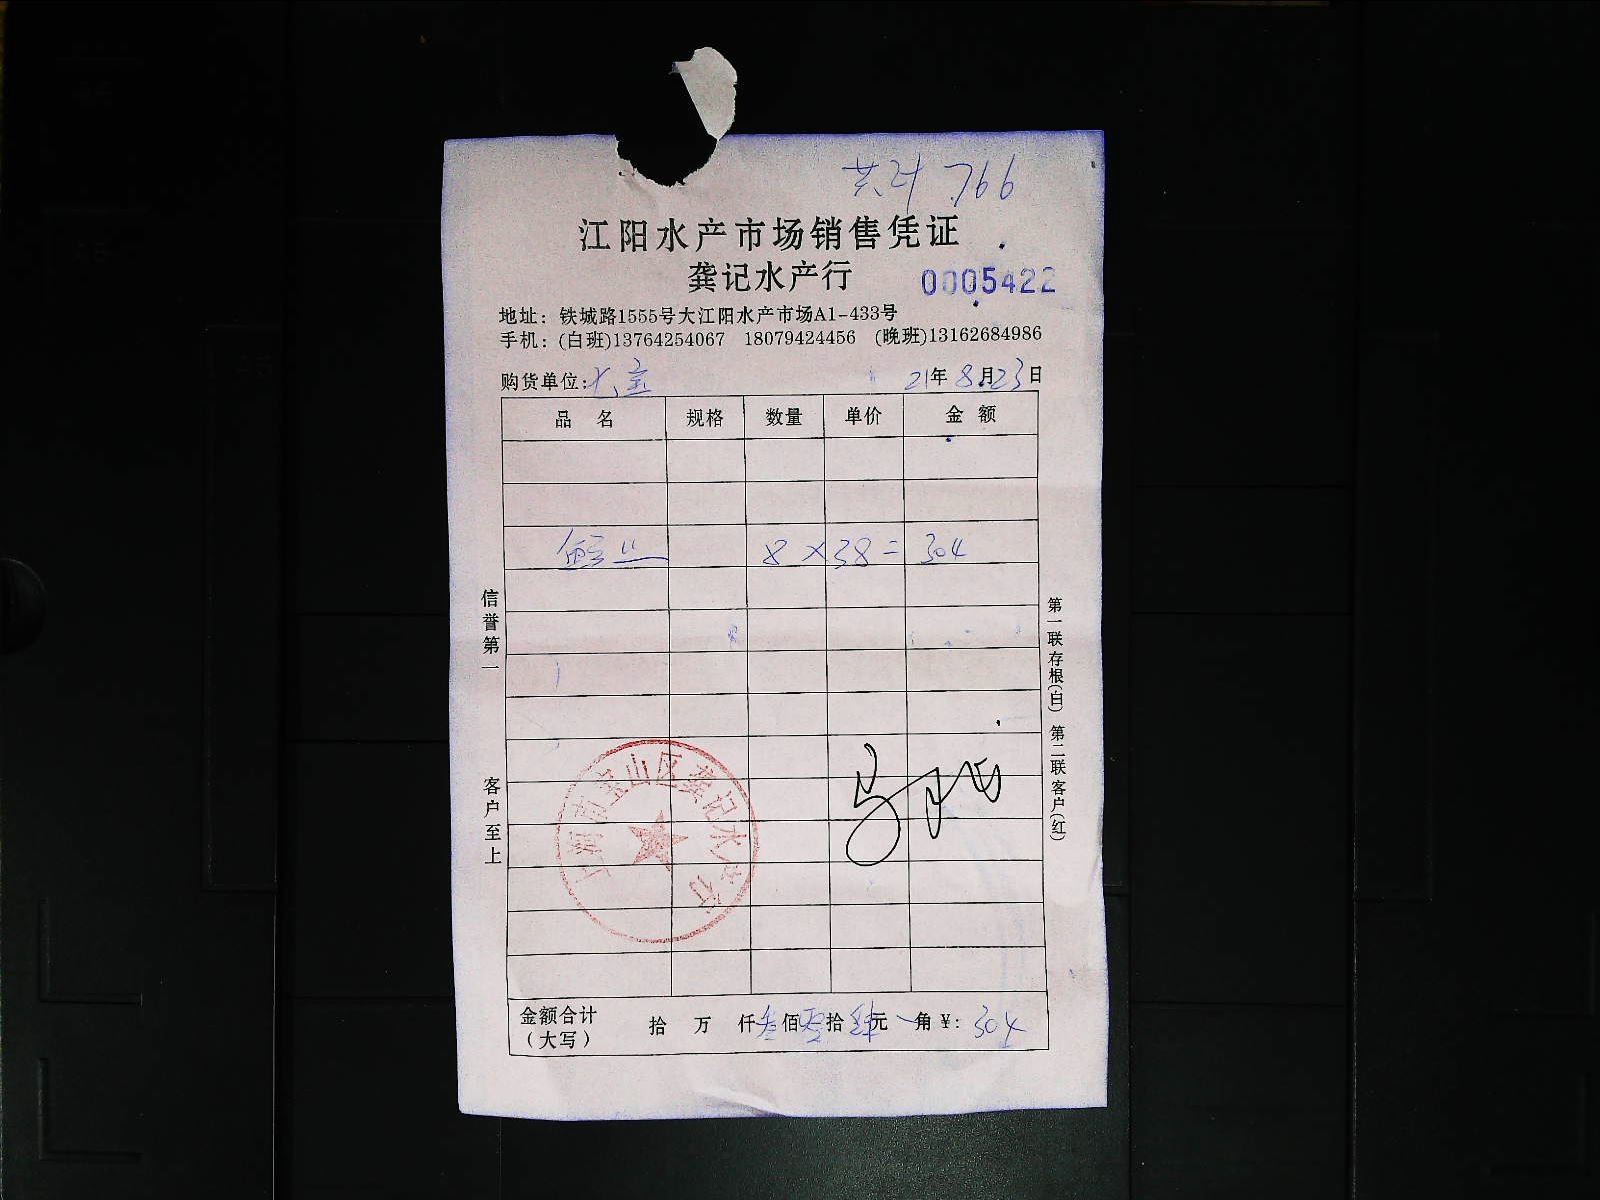 共计 766
江阳水产市场销售凭证
龚记水产行
0005422
地址：铁城路1555号大江阳水产市场A1-433号
手机：(白班)13764254067 18079424456 (晚班)13162684986
购货单位: 21年 8月23日
品 名 规格 数量 单价 金 额
8 ×38 = 304
信誉第一
客户至上
第一联存根(白) 第二联客户(红)
上海市宝山区龚记水产行
金额合计（大写） 拾 万 仟叁佰零拾肆元 角 ¥: 304